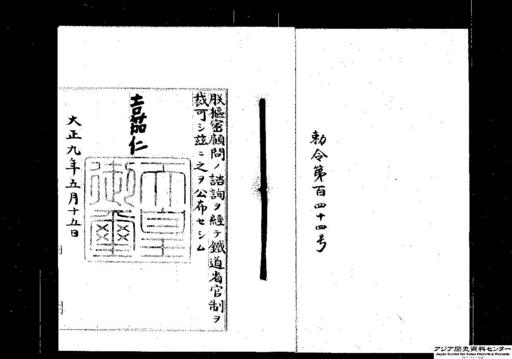 勅令第百四十四号
朕樞密顧問ノ諮詢ヲ經テ鐵道省官制ヲ
裁可シ茲ニ之ヲ公布セシム
嘉仁
天皇
御璽
大正九年五月十五日
アジア歴史資料センター
Japan Center for Asian Historical Records